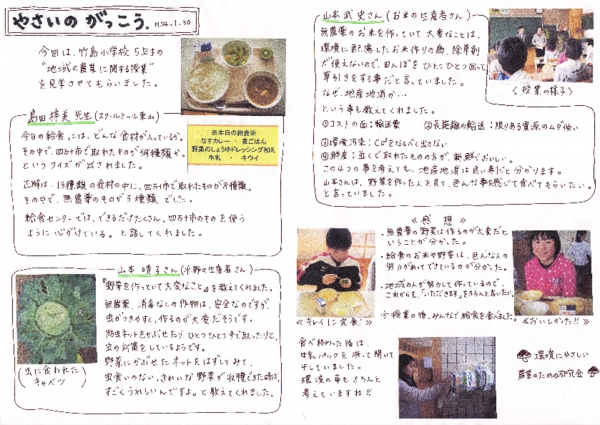 やさいの がっこう. H24.1.30
今回は、竹島小学校5年生の
"地域の農業に関する授業"
を見学させてもらいました。
先生(スクールミール東山)
今日の給食には、どんな食材が入っているか。
その中で、四万十市で取れたものが何種類か
というクイズが出されました。
正解は、13種類の食材の中に、四万十市で取れたものが8種類。
その中で、無農薬のものが3種類でした。
給食センターでは、できるだけたくさん、四万十市のものを使う
ように心がけている。と話してくれました。
※本日の給食※
なすカレー ・ 麦ごはん
野菜のしょうゆドレッシング和え
牛乳 ・ キウイ
山本 晴子さん(平野の生産者さん)
『野菜を作っていて大変なこと』を教えてくれました。
無農薬、消毒なしの作物は、安全なのですが、
虫がつきやすく、作るのが大変だそうです。
防虫ネットをかぶせたり、ひとつひとつ手で取ったりと、
虫の対策をしているようです。
野菜にかぶせたネットをはずしてみて、
虫食いのない、きれいな野菜が収穫できた時は、
すごくうれしいんですよ。と教えてくれました。
(虫に食われた
キャベツ)
山本 武史さん(お米の生産者さん)
無農薬のお米を作っていて大事なことは、
環境に配慮したお米作りの為、除草剤
が使えないので、田んぼをひとつひとつ回って
草引きをする事だと言っていました。
なぜ、地産地消か…
という事も教えてくれました。
①コストの面:輸送費 ②長距離の輸送:限りある資源のムダ使い
③環境汚染:CO²をなるべく出さない
④鮮度:近くで取れたものの方が、新鮮でおいしい。
この4つの事を考えても、地産地消は良い事だと分かります。
山本さんは、野菜を作った人を見て、色んな事を感じて食べてもらいたい。
と言っていました。
<授業の様子>
≪感想≫
・無農薬の野菜は作るのが大変だと
いうことが分かった。
・給食のお米や野菜は、色んな人の
努力があってできているのが分かった。
・地域の人が努力して作っているので、
これからも、「いただきます」をきちんと言いたい。
☆授業の後、みんなで給食を食べました。
≪キレイに完食!≫
≪おいしかった!!≫
食べ終わった後は、
牛乳パックを洗って開いて
干していました。
環境の事もきちんと
考えていますね!!
環境にやさしい
農業のための研究会